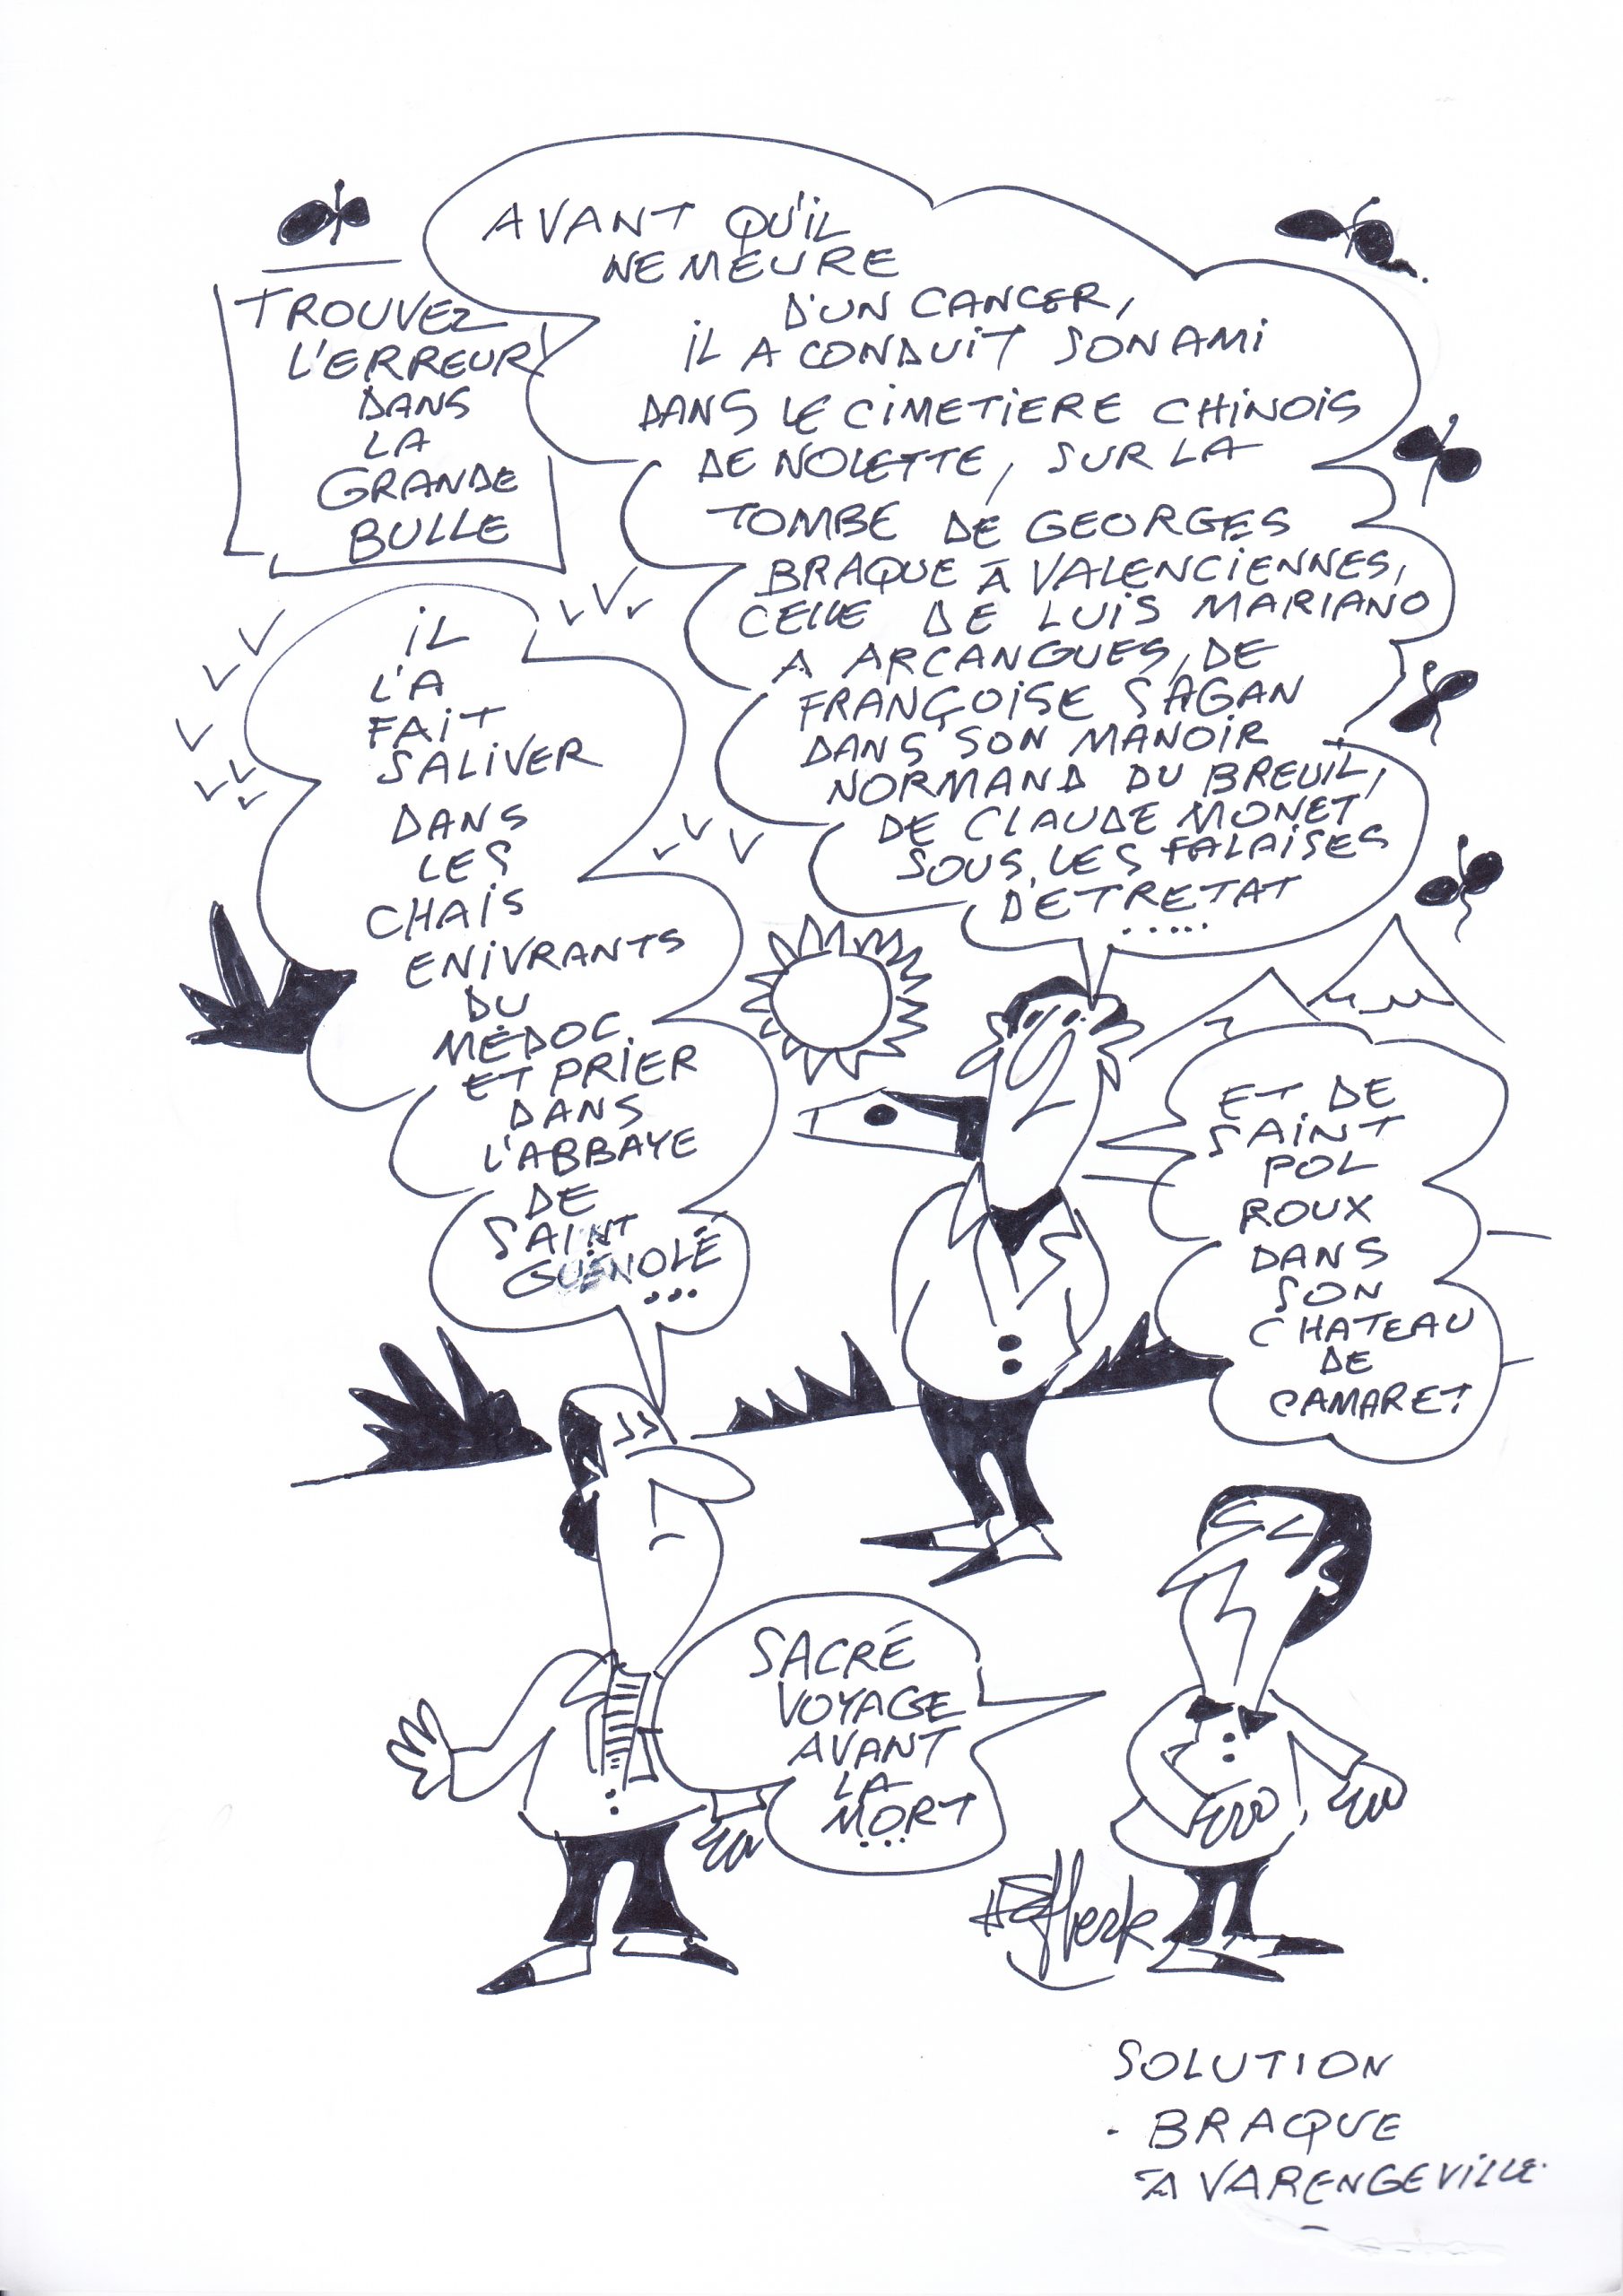 TROUVEZ
L'ERREUR
DANS
LA
GRANDE
BULLE
AVANT QU'IL
NE MEURE
D'UN CANCER,
IL A CONDUIT SON AMI
DANS LE CIMETIERE CHINOIS
DE NOLETTE, SUR LA
TOMBE DE GEORGES
BRAQUE A VALENCIENNES,
CELLE DE LUIS MARIANO
A ARCANGUES, DE
FRANÇOISE SAGAN
DANS SON MANOIR
NORMAND DU BREUIL,
DE CLAUDE MONET
SOUS LES FALAISES
D'ETRETAT
.....
IL
L'A
FAIT
SALIVER
DANS
LES
CHAIS
ENIVRANTS
DU
MÉDOC
ET PRIER
DANS
L'ABBAYE
DE
SAINT
GUÉNOLÉ
...
ET DE
SAINT
POL
ROUX
DANS
SON
CHATEAU
DE
CAMARET
SACRÉ
VOYAGE
AVANT
LA
MORT
...
SOLUTION
- BRAQUE
A VARENGEVILLE.